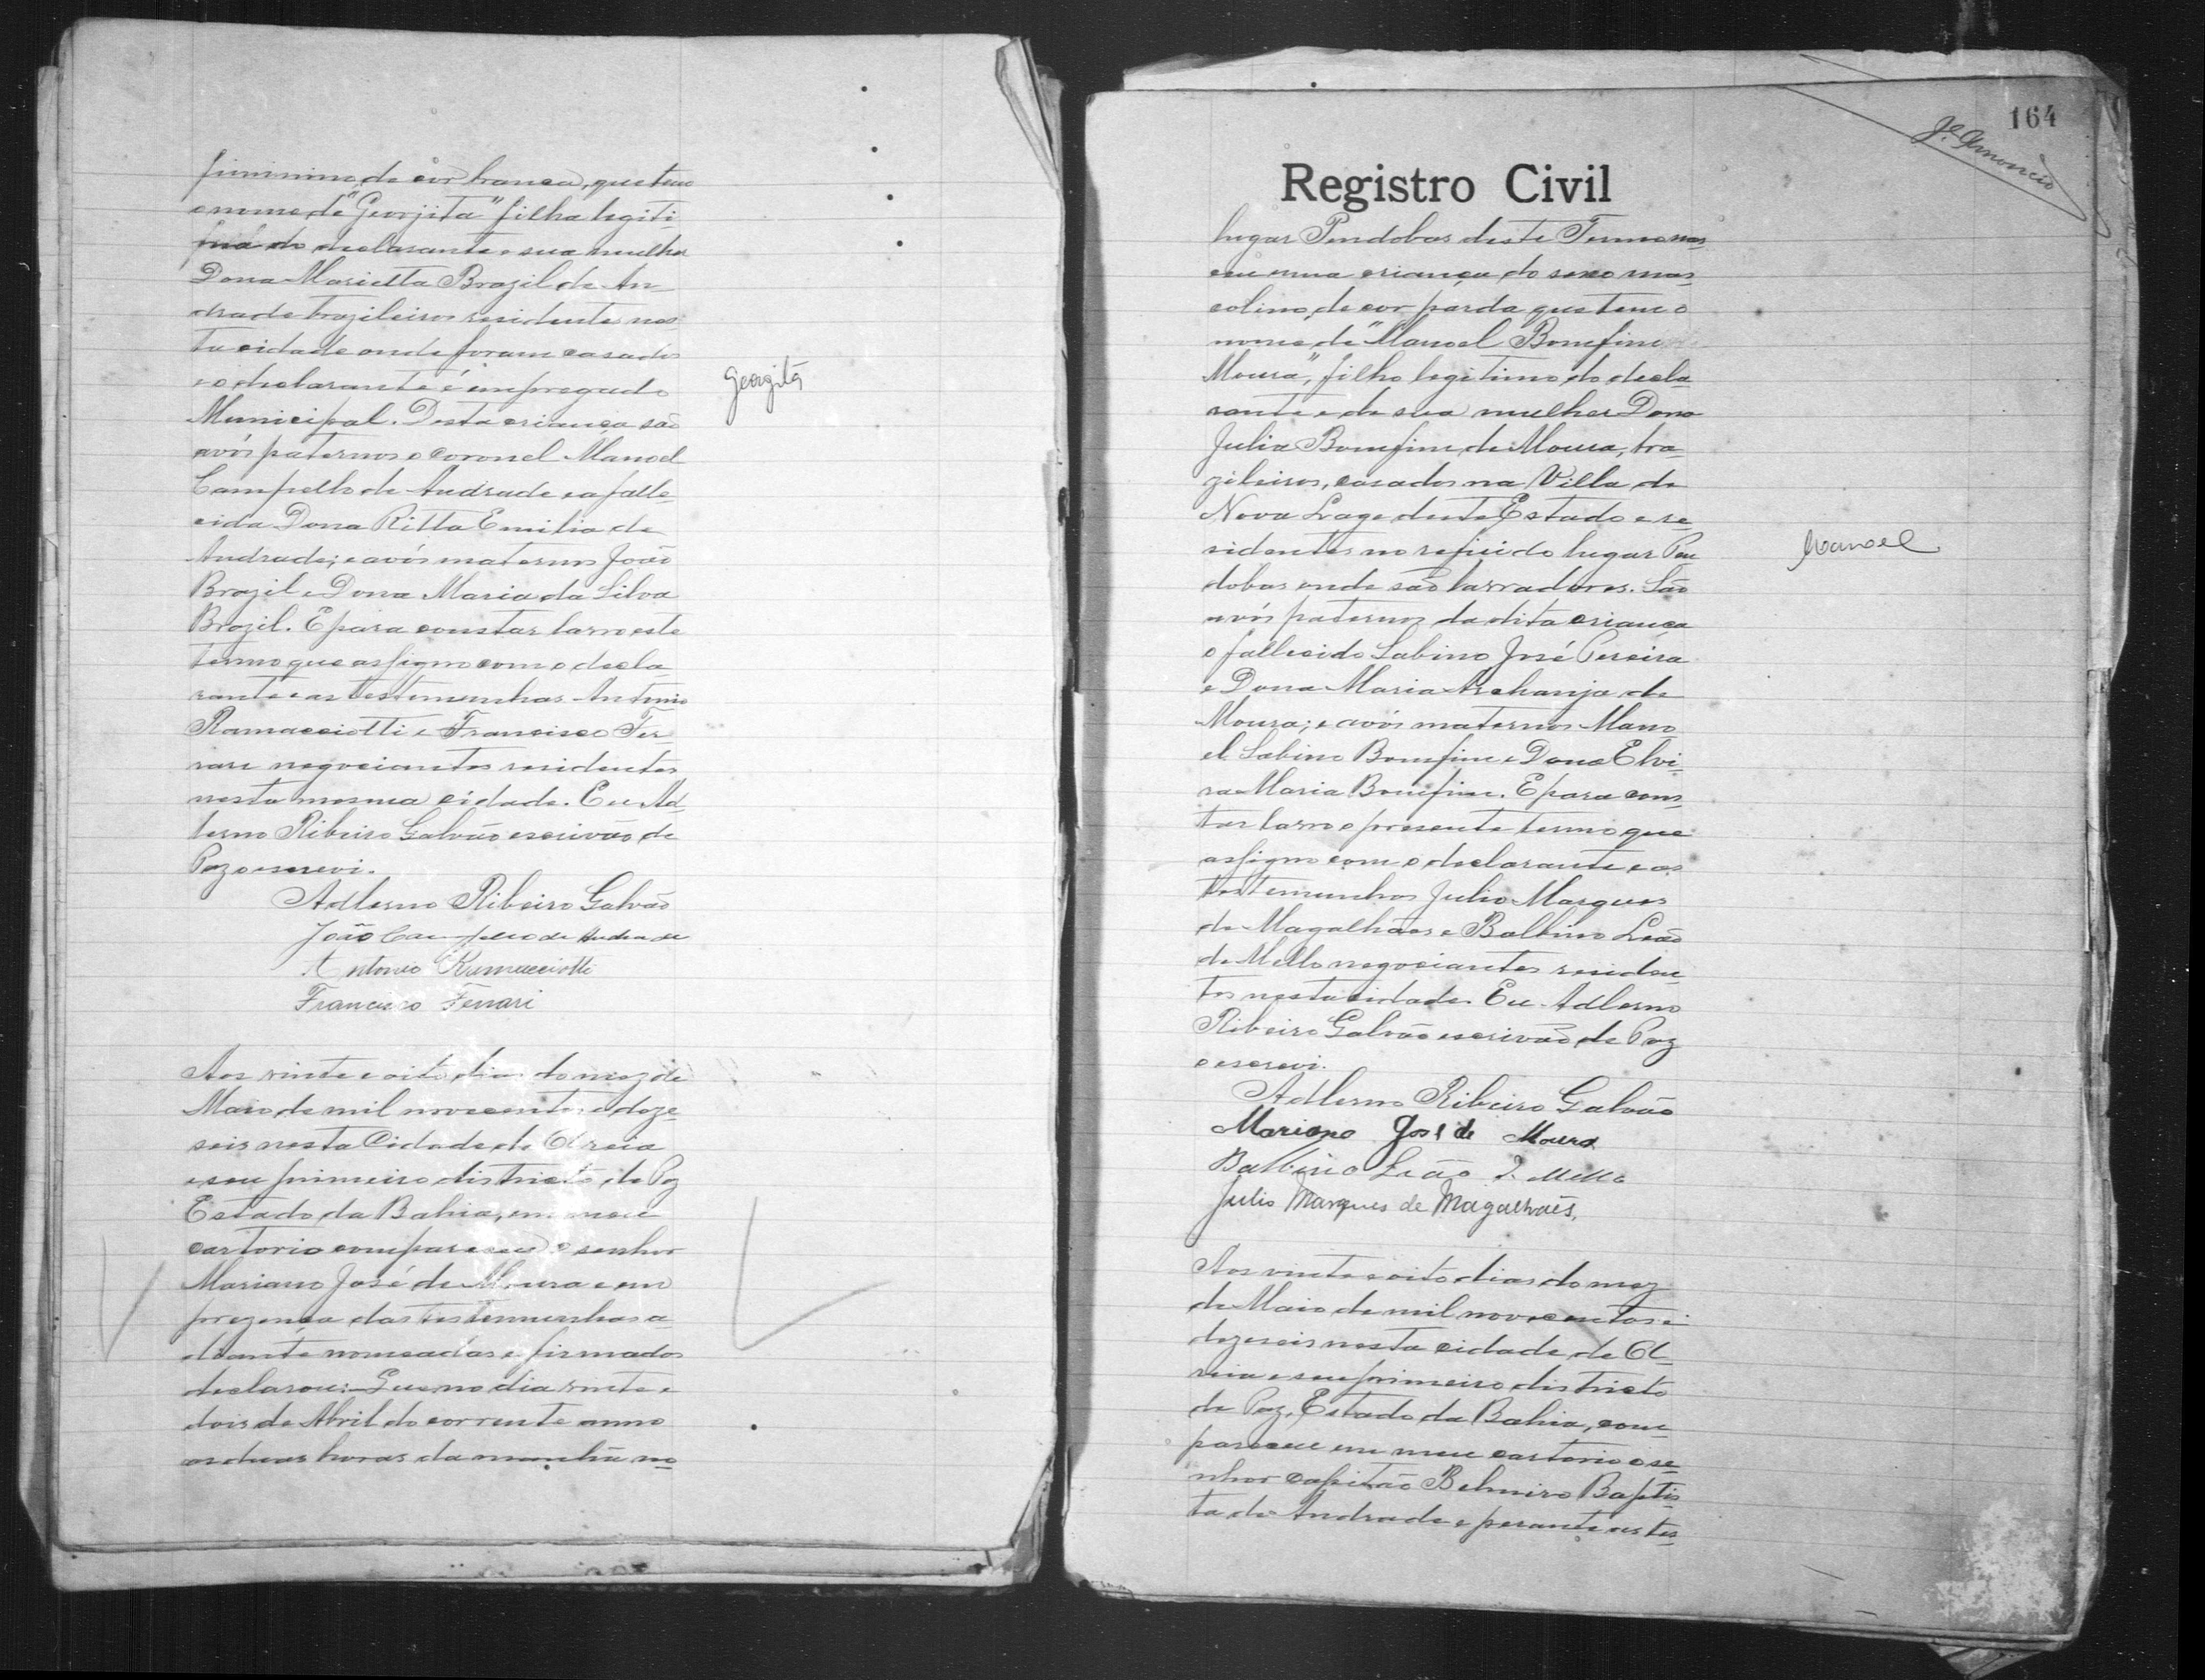 feminino, de cor branca, que teve
o nome de "Georjita" filha legiti
ma do declarante e sua mulher
Dona Marietta Brazil de An
drade brazileiros residente nes
ta cidade onde foram casados
e o declarante é empregado
Municipal. Desta criança são
avós paternos o coronel Manoel
Campello de Andrade e a falle
cida Dona Ritta Emilia de
Andrade; e avós maternos João
Brazil e Dona Maria da Silva
Brazil. E para constar lavro este
termo que assigno com o decla
rante e as testemunhas Antonio
Ramacciotti e Francisco Fer
rari negociantes residentes
nesta mesma cidade. Eu Ad
lerno Ribeiro Galvão escrivão de
Paz o escrevi.
Adlerno Ribeiro Galvão
João Campello de Andrade
Antonio Ramacciotti
Francisco Ferrari
Georgita
Aos vinte e oito dias do mez de
Maio de mil novecentos e deze
seis nesta Cidade de Areia
e seu primeiro districto de Paz
Estado da Bahia, em meu
cartorio compareceu o senhor
Mariano José de Moura e em
prezença das testemunhas a
diante nomeadas e firmados
declarou:- Que no dia vinte e
dois de Abril do corrente anno
as duas horas da manhã no
164
Jo. Amancio
Registro Civil
lugar Pendobas deste Termo nas
ceu uma criança do sexo mas
colino, de cor parda que tem o
nome de "Manoel Bomfim
Moura", filho legitimo do decla
rante e de sua mulher Dona
Julia Bomfim de Moura, bra
zileiros, casados na Villa de
Nova Lage deste Estado e re
sidentes no referido lugar Pen
dobas onde são lavradores. São
avós paternos da dita criança
o fallecido Sabino José Pereira
e Dona Maria Archanja de
Moura; e avós maternos Mano
el Sabino Bomfim e Dona Elvi
ra Maria Bomfim. E para cons
tar lavro o presente termo que
assigno com o declarante e as
testemunhas Julio Marques
de Magalhães e Balbino Leão
de Mello negociantes residen
tes nesta cidade. Eu Adlerno
Ribeiro Galvão escrivão de Paz
o escrevi.
Adlerno Ribeiro Galvão
Mariano José de Moura
Balbino Leão d. Mello
Julio Marques de Magalhães,
Manoel
Aos vinte e oito dias do mez
de Maio de mil novecentos e
dezeseis nesta cidade de A
reia e seu primeiro districto
de Paz, Estado da Bahia, com
pareceu em meu cartorio o se
nhor capitão Belmiro Baptis
ta de Andrade e perante as tes